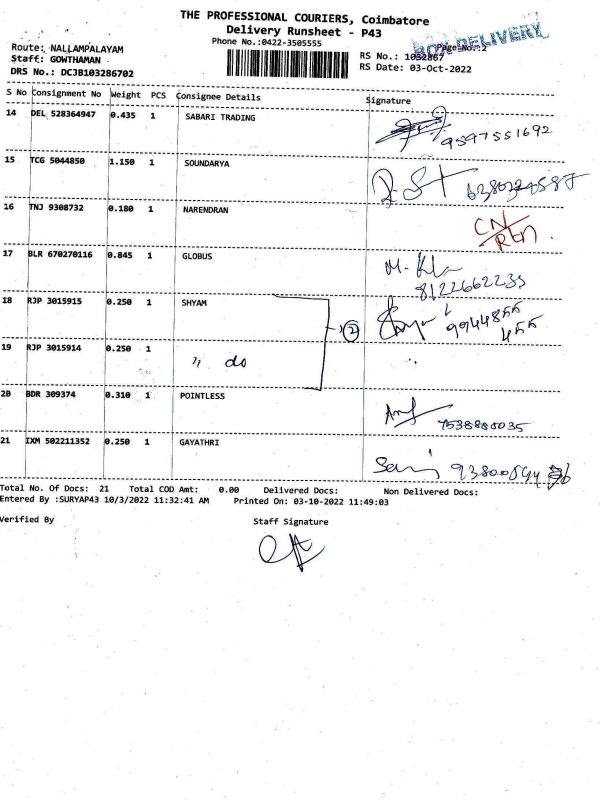 THE PROFESSIONAL COURIERS, Coimbatore
Delivery Runsheet - P43
Phone No.:0422-3505555
BOX DELIVERY
Page No.:2
Route: NALLAMPALAYAM
Staff: GOWTHAMAN
DRS No.: DCJB103286702
RS No.: 1032867
RS Date: 03-Oct-2022
S No Consignment No Weight PCS Consignee Details Signature
14 DEL 528364947 0.435 1 SABARI TRADING 9597551692
15 TCG 5044850 1.150 1 SOUNDARYA
16 TNJ 9308732 0.180 1 NARENDRAN
17 BLR 670270116 0.845 1 GLOBUS
8122662235
18 RJP 3015915 0.250 1 SHYAM 9944855
455
2
19 RJP 3015914 0.250 1 " do
20 BDR 309374 0.310 1 POINTLESS 7538880035
21 IXM 502211352 0.250 1 GAYATHRI
Total No. Of Docs: 21 Total COD Amt: 0.00 Delivered Docs: Non Delivered Docs:
Entered By :SURYAP43 10/3/2022 11:32:41 AM Printed On: 03-10-2022 11:49:03
Verified By Staff Signature